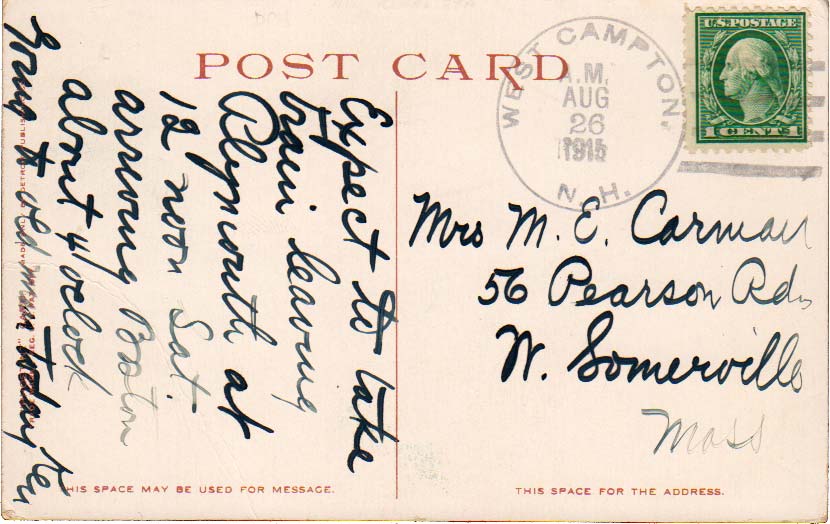 POST CARD
WEST CAMPTON
A.M.
AUG
26
1915
N. H.
U.S. POSTAGE
1 CENT 1
Expect to take
train leaving
Plymouth at
12 noon Sat.
arriving Boston
about 4 oclock
Going to old man today
Mrs M. E. Carman
56 Pearson Rd
W. Somerville
Mass
THIS SPACE MAY BE USED FOR MESSAGE.
THIS SPACE FOR THE ADDRESS.